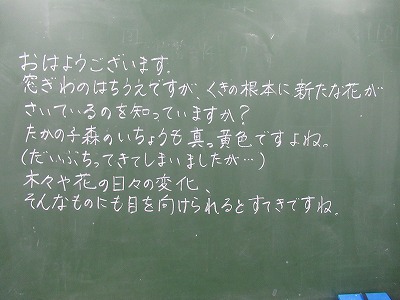 おはようございます。
窓ぎわのはちうえですが、くきの根本に新たな花が
さいているのを知っていますか？
たかの子森のいちょうも真っ黄色ですよね。
(だいぶちってきてしまいましたが…)
木々や花の日々の変化、
そんなものにも目を向けられるとすてきですね。